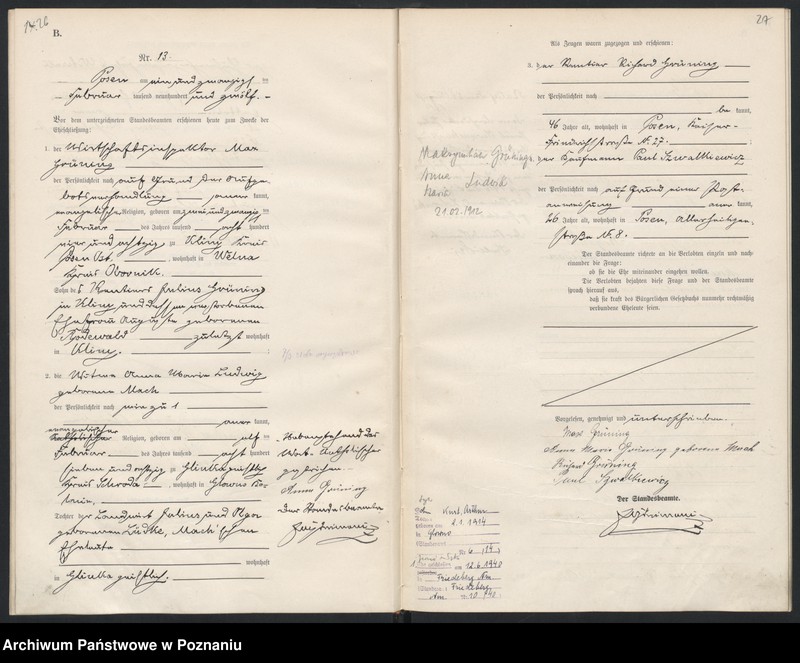 14.26
B.
Nr. 13.
Posen am ein und zwanzigsten
Februar tausend neunhundert und zwölf.
Vor dem unterzeichneten Standesbeamten erschienen heute zum Zwecke der
Eheschließung:
1. der Wirtschaftsinspektor Max
Grüning
der Persönlichkeit nach auf Grund der Aufge-
botsverhandlung aner kannt,
evangelischer Religion, geboren am zwei und zwanzigsten
Februar des Jahres tausend acht hundert
vier und achtzig zu Uliny Kreis
Posen Ost, wohnhaft in Welna
Kreis Obornik.
Sohn des Rentiers Julius Grüning
in Uliny und dessen verstorbenen
Ehefrau Auguste geborenen
Rodewald zuletzt wohnhaft
in Uliny.
2. die Witwe Anna Maria Ludwig
geborene Mach
der Persönlichkeit nach wie zu 1
aner kannt,
evangelischer
katholischer Religion, geboren am elf ten
Februar des Jahres tausend acht hundert
sieben und achtzig zu
Kreis Schroda, wohnhaft in Glowno
Tochter der Landwirt Julius und
geborenen Lüdke, Mach'schen
Eheleute
wohnhaft
in
Nebenstehend das
Wort "katholischer"
gestrichen.
Anna Grüning
Der Standesbeamte
27
Als Zeugen waren zugezogen und erschienen:
3. der Rentier Richard Grüning
der Persönlichkeit nach
be kannt,
46 Jahre alt, wohnhaft in Posen, Kaiser-
Friedrichstraße N. 27.
4. der Kaufmann Paul Szwalkiewicz
der Persönlichkeit nach auf Grund einer Post-
anweisung aner kannt,
46 Jahre alt, wohnhaft in Posen, Allerheiligen-
straße N. 8.
Maksymilian Grüning
Anna
Maria Ludwig
21.02.1912
Der Standesbeamte richtete an die Verlobten einzeln und nach-
einander die Frage:
ob sie die Ehe miteinander eingehen wollen.
Die Verlobten bejahten diese Frage und der Standesbeamte
sprach hierauf aus,
daß sie kraft des Bürgerlichen Gesetzbuchs nunmehr rechtmäßig
verbundene Eheleute seien.
Vorgelesen, genehmigt und unterschrieben.
Max Grüning
Anna Maria Grüning geborene Mach
Richard Grüning
Paul Szwalkiewicz
Der Standesbeamte.
Kurt
6.1.1914
Glowno
12.6.1940
Friedeberg Nm
Friedeberg
Nm 10/40
Archiwum Państwowe w Poznaniu